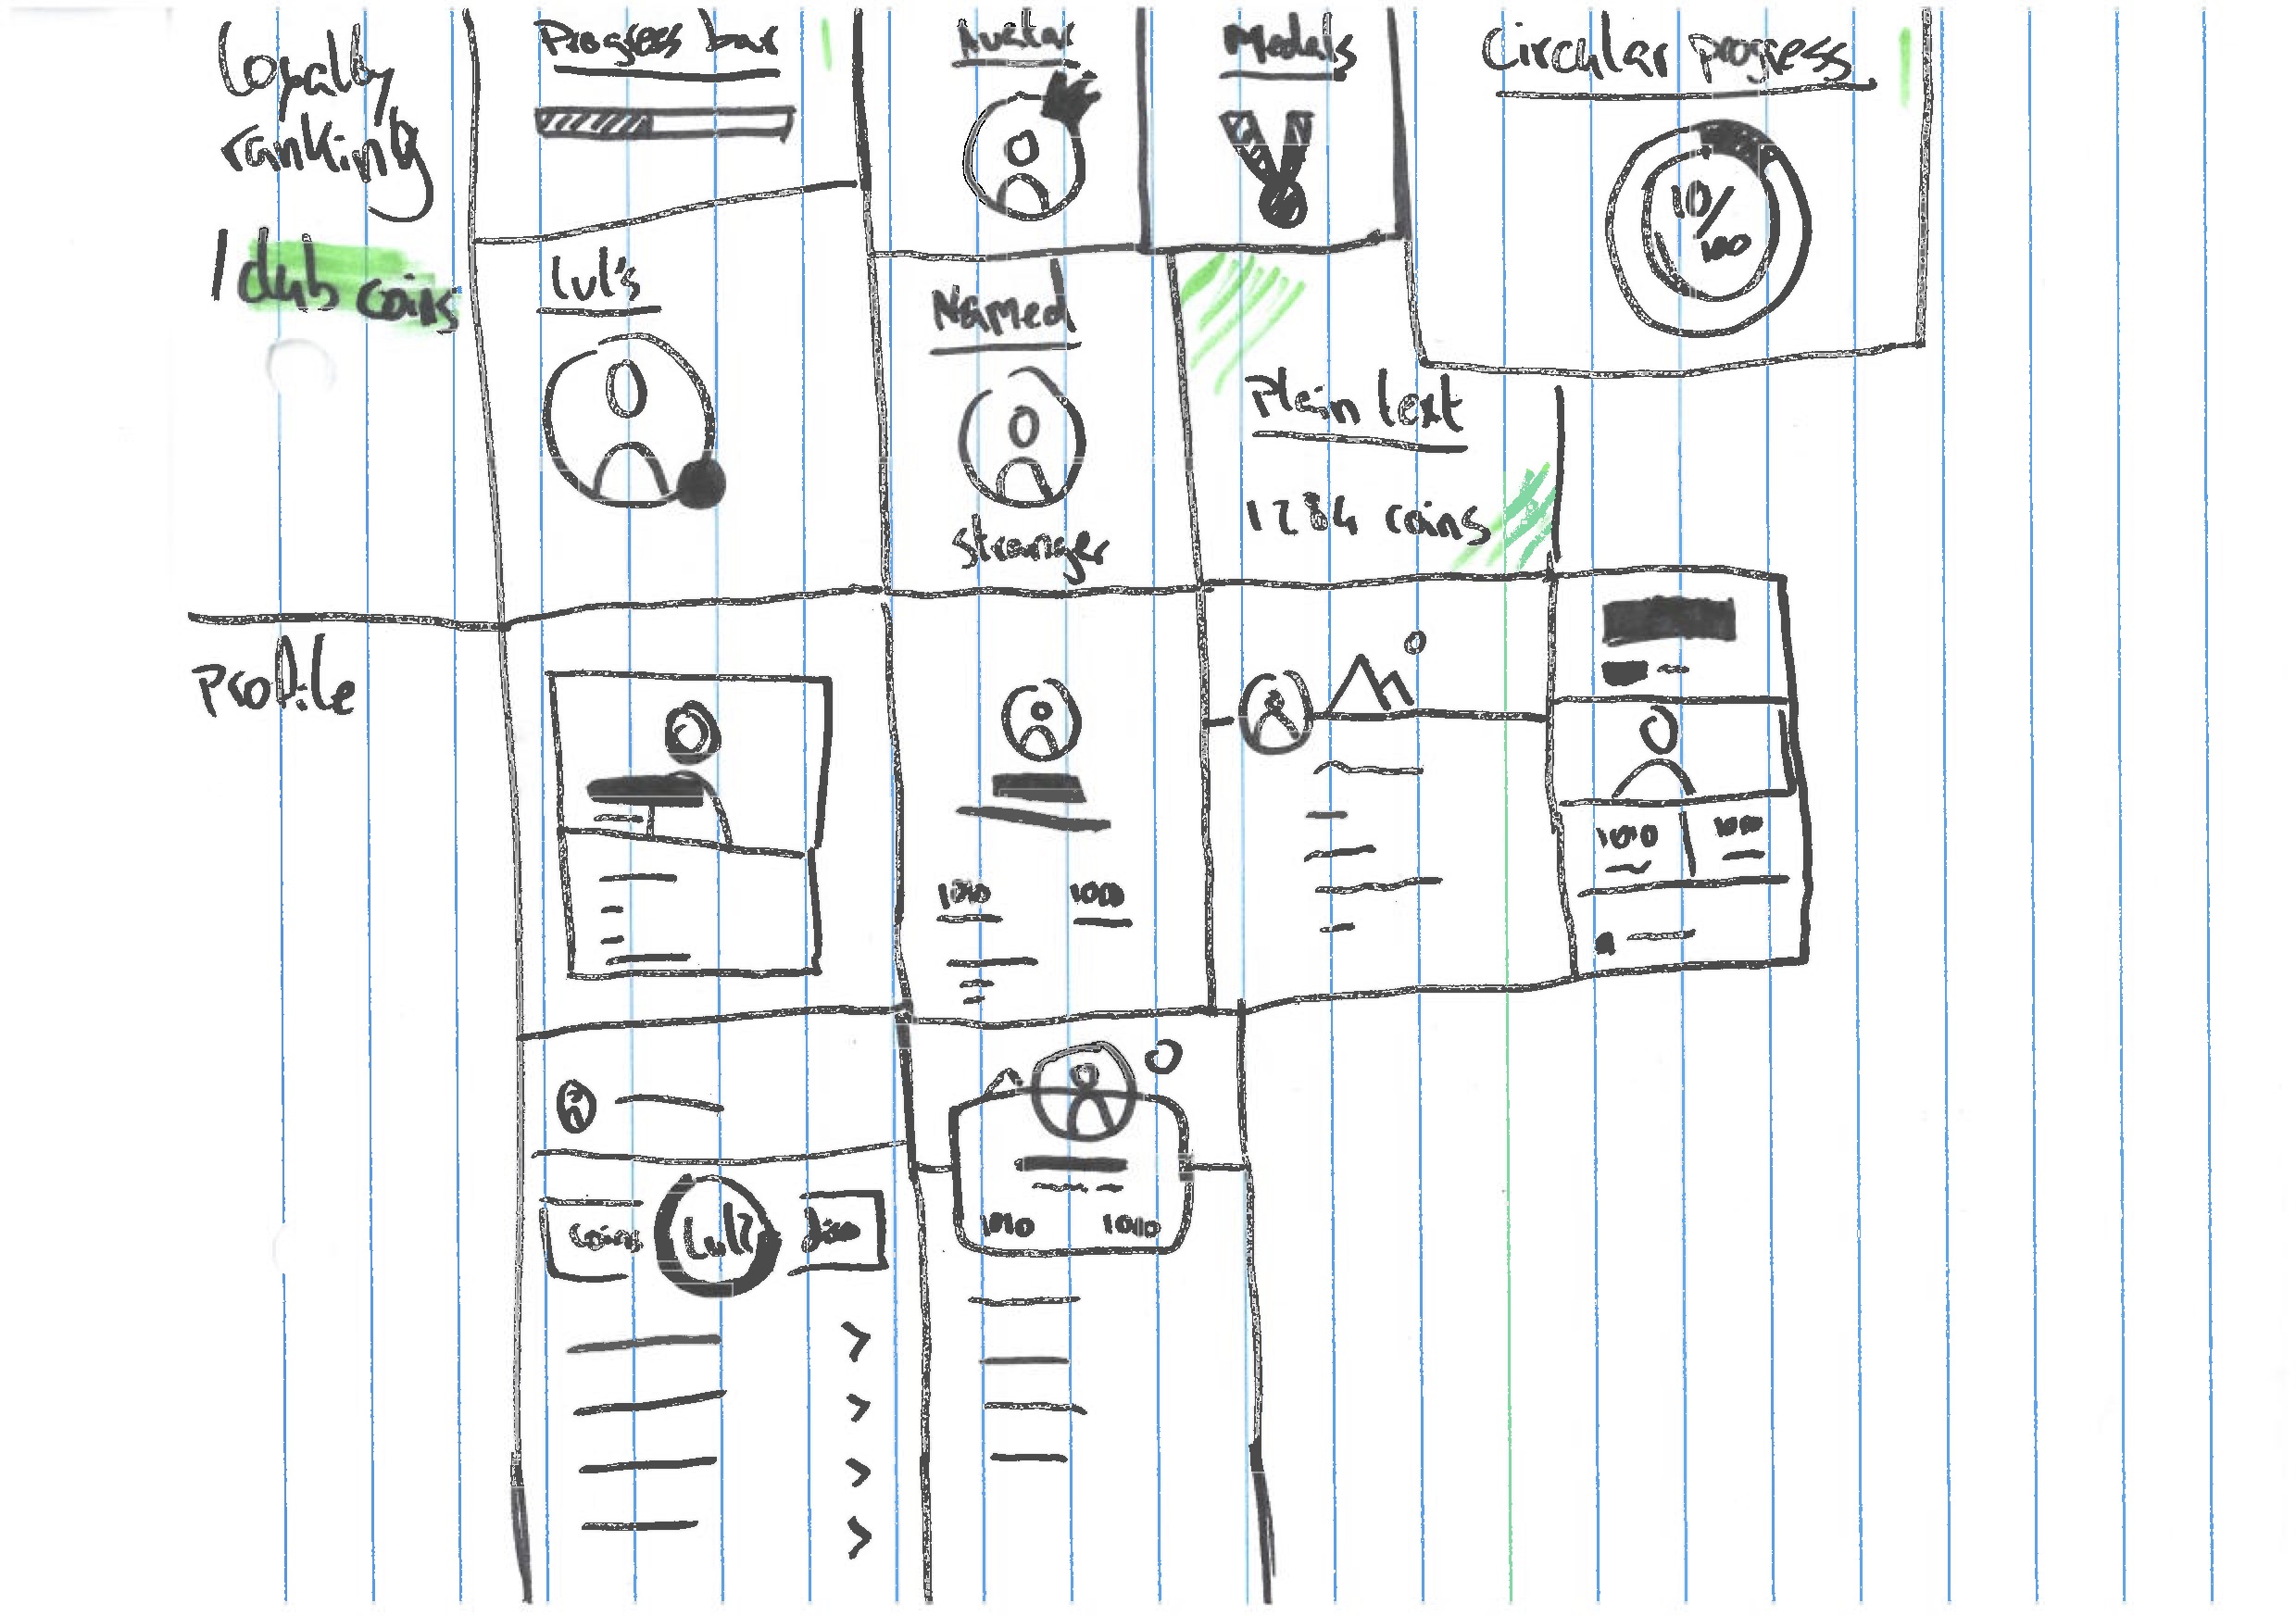 Loyalty
ranking
/ club coins
Progress bar
Avatar
Medals
Circular progress
10/
100
lvl's
Named
stranger
Plain text
1284 coins
Profile
1000
1000
1000
1000
coins
lvl?
1000
1000